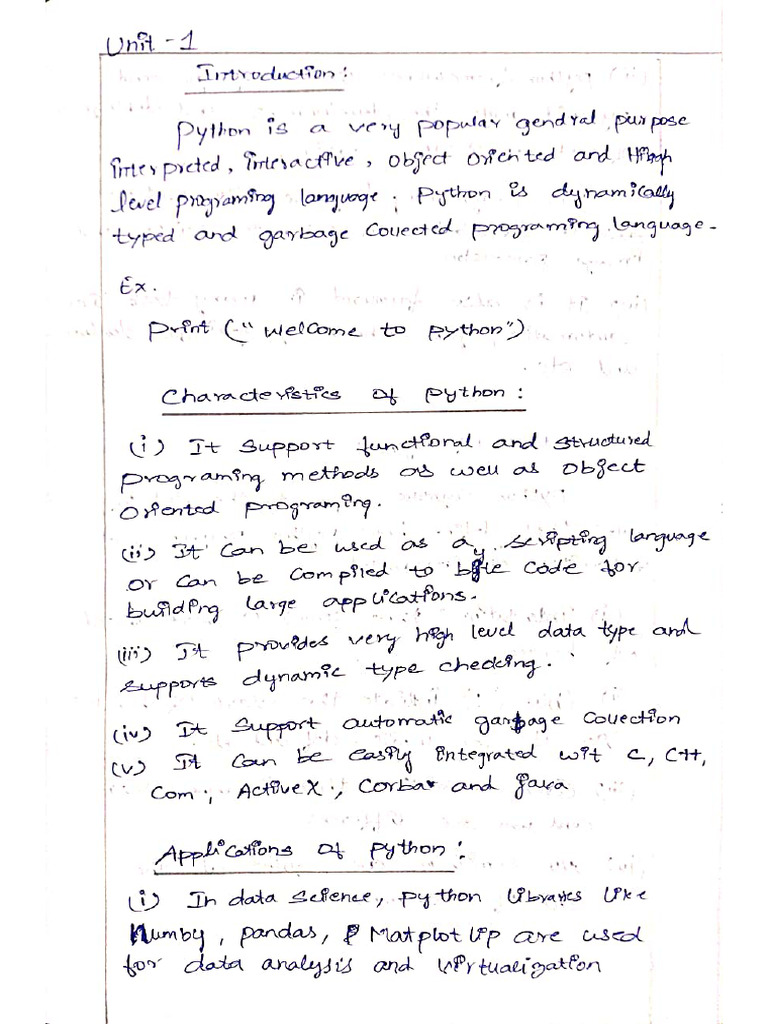 Unit - 1
Introduction:
Python is a very popular gendral purpose
interpreted, interactive, object oriented and High
level programing language. Python is dynamically
typed and garbage collected programing language.
Ex.
Print ("Welcome to python")
Characteristics of python:
(i) It support functional and structured
programing methods as well as object
oriented programing.
(ii) It can be used as a scripting language
or can be compiled to byte code for
building large applications.
(iii) It provides very high level data type and
supports dynamic type checking.
(iv) It support automatic garbage collection
(v) It can be easily integrated wit C, C++,
Com, ActiveX, Corba and Java
Applications of python:
(i) In data science, python libraries like
Numby, pandas, Matplotlip are used
for data analysis and virtualization